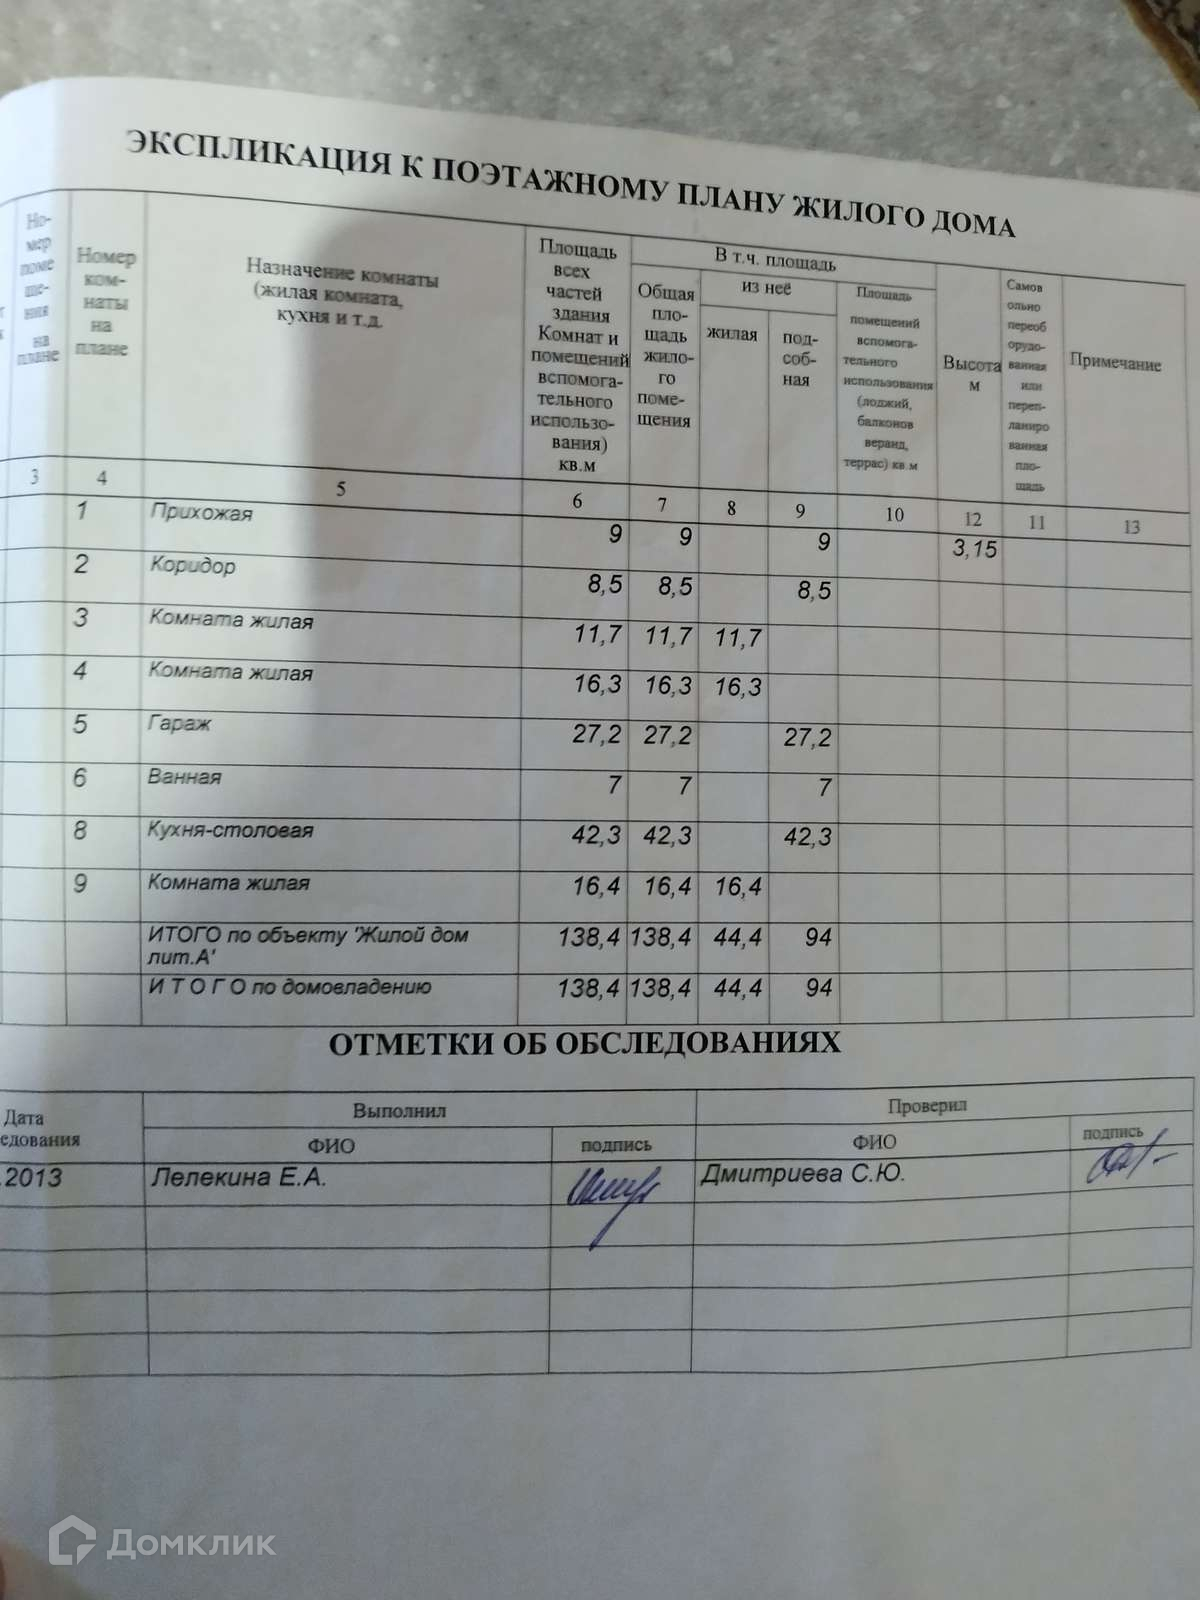 ЭКСПЛИКАЦИЯ К ПОЭТАЖНОМУ ПЛАНУ ЖИЛОГО ДОМА
Но-
мер
поме
ще-
ния
на
плане
Номер
ком-
наты
на
плане
Назначение комнаты
(жилая комната,
кухня и т.д.
Площадь
всех
частей
здания
Комнат и
помещений
вспомога-
тельного
использо-
вания)
кв.м
В т.ч. площадь
Общая
пло-
щадь
жило-
го
поме-
щения
из неё
жилая
под-
соб-
ная
Площадь
помещений
вспомога-
тельного
использования
(лоджий,
балконов
веранд,
террас) кв.м
Высота
м
Самов
ольно
переоб
орудо-
ванная
или
переп-
ланиро
ванная
пло-
щадь
Примечание
3 4 5 6 7 8 9 10 12 11 13
1 Прихожая 9 9 9 3,15
2 Коридор 8,5 8,5 8,5
3 Комната жилая 11,7 11,7 11,7
4 Комната жилая 16,3 16,3 16,3
5 Гараж 27,2 27,2 27,2
6 Ванная 7 7 7
8 Кухня-столовая 42,3 42,3 42,3
9 Комната жилая 16,4 16,4 16,4
ИТОГО по объекту 'Жилой дом
лит.А' 138,4 138,4 44,4 94
И Т О Г О по домовладению 138,4 138,4 44,4 94
ОТМЕТКИ ОБ ОБСЛЕДОВАНИЯХ
Дата
едования
Выполнил
Проверил
ФИО подпись ФИО подпись
.2013 Лелекина Е.А. Дмитриева С.Ю.
Домклик